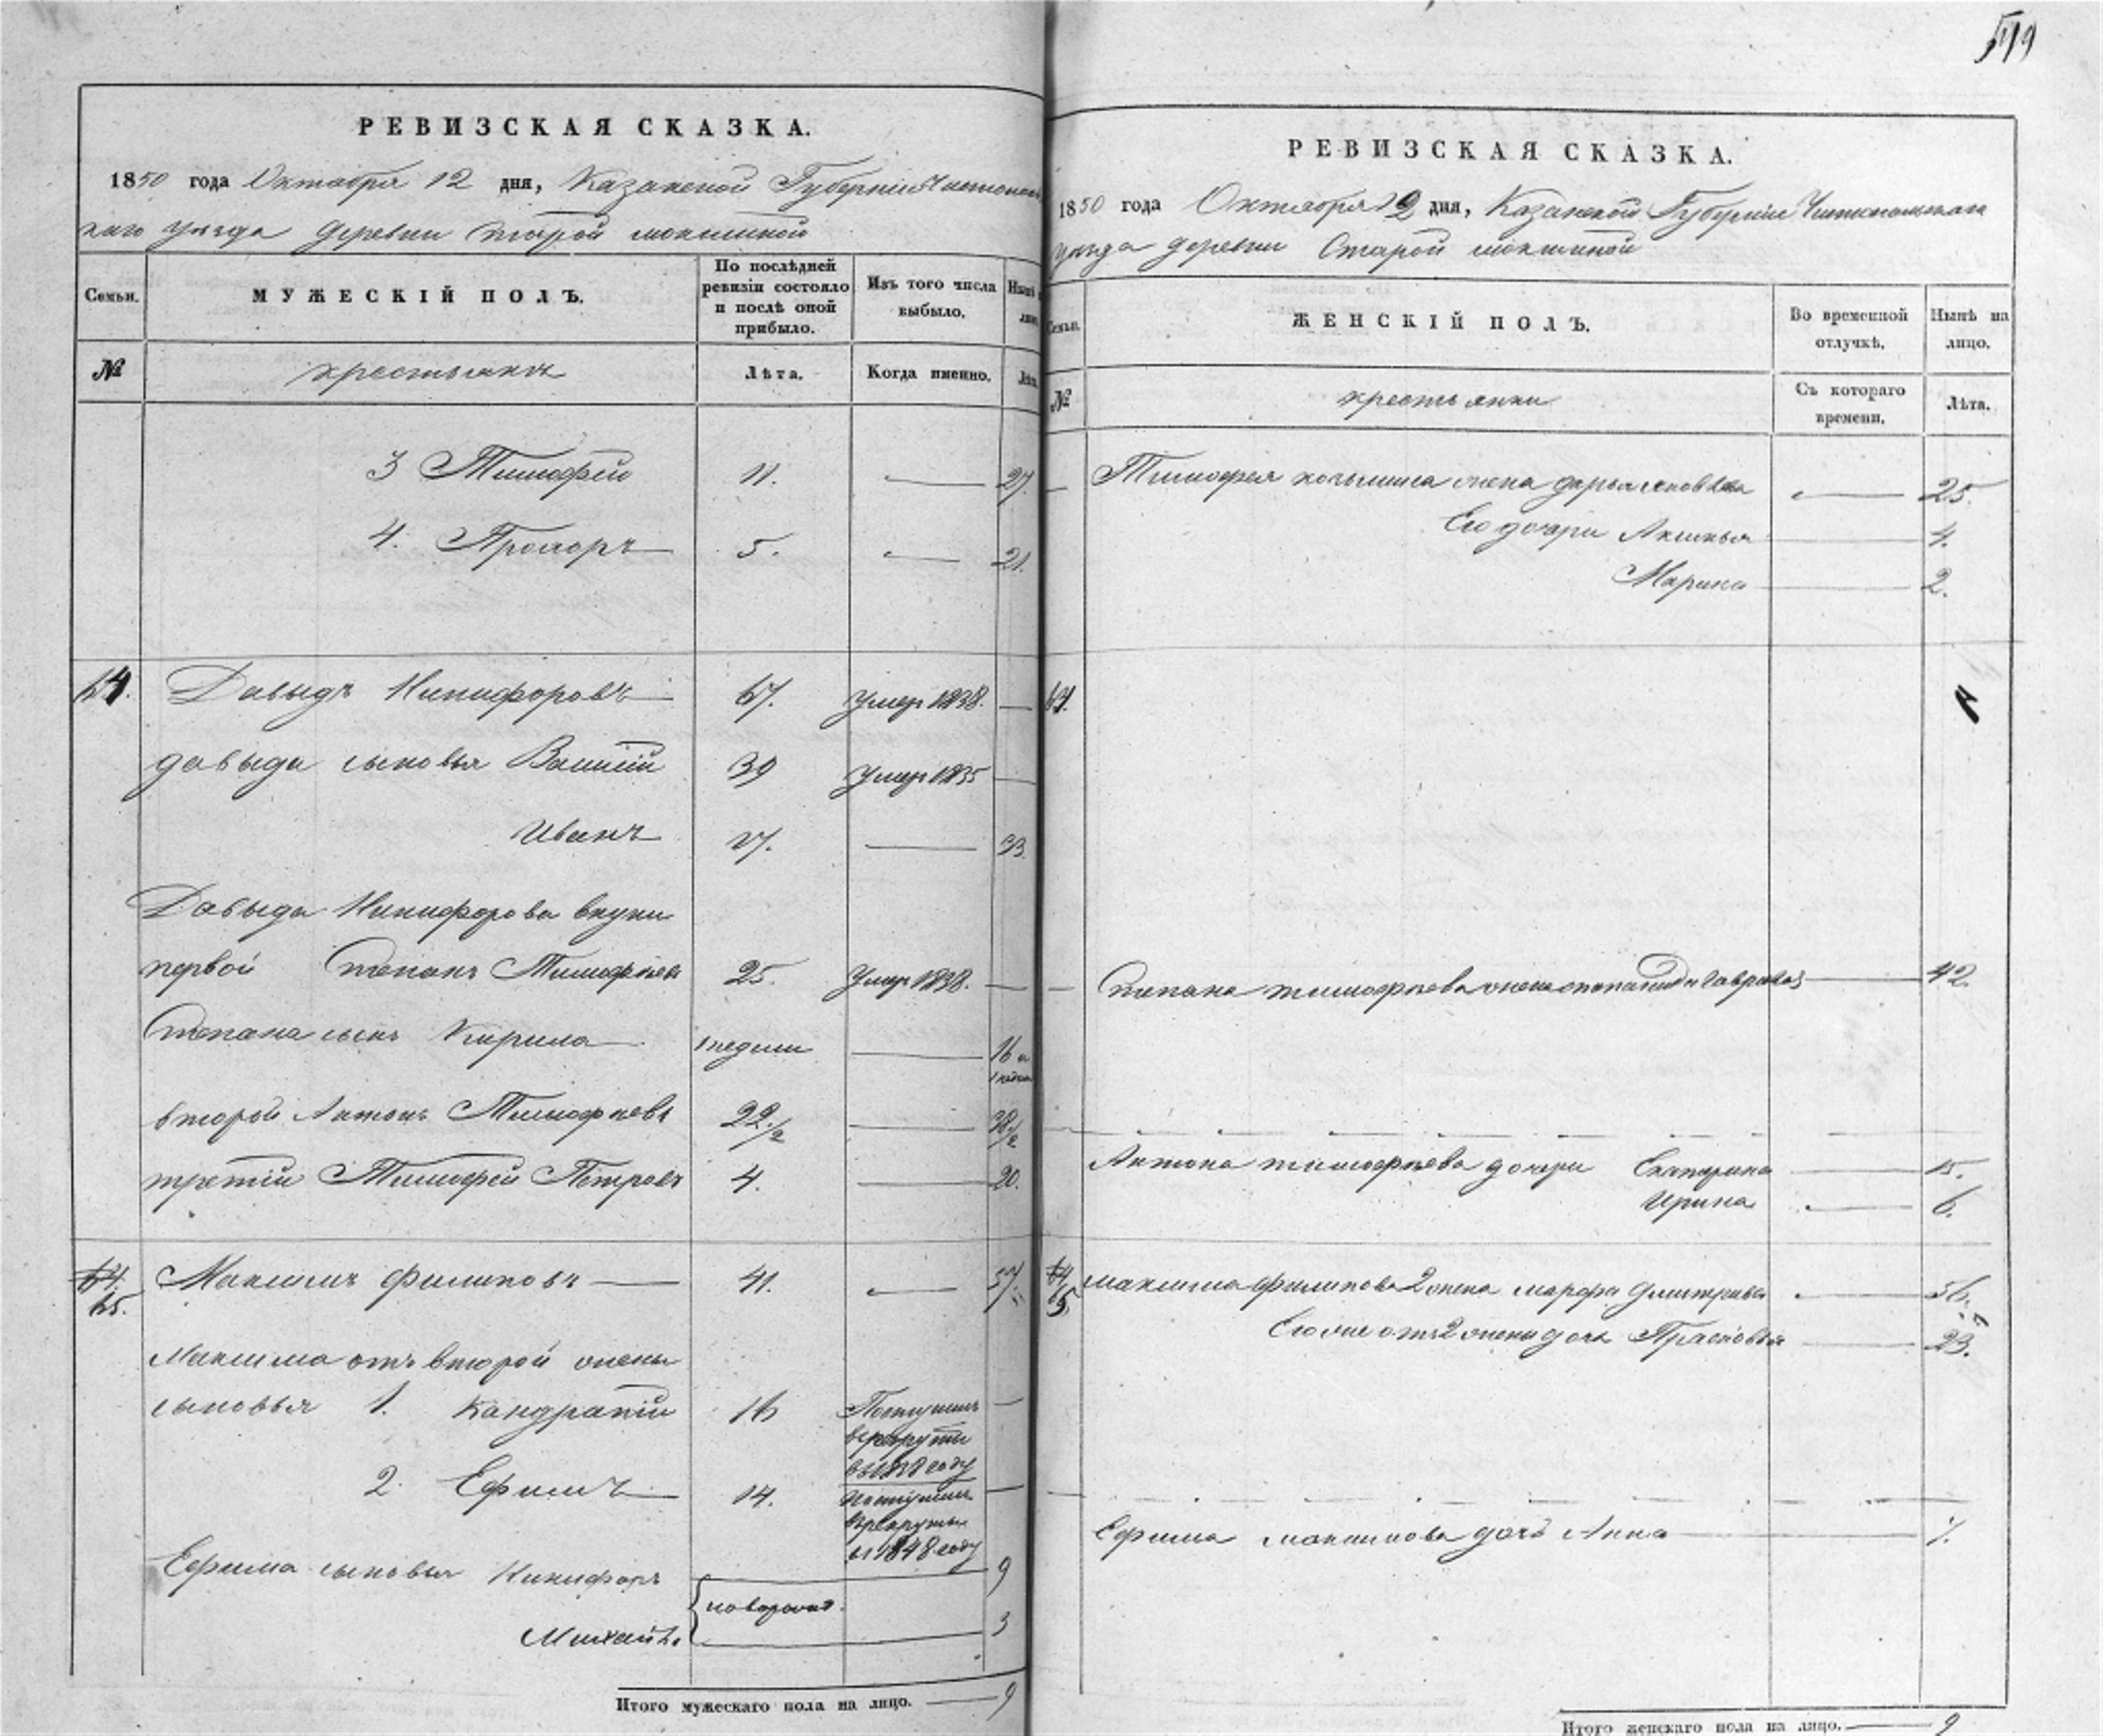 519
РЕВИЗСКАЯ СКАЗКА.
1850 года Октября 12 дня, Казанской Губернии Чистополь
скаго уезда деревни Старой мокшиной
Семьи.
МУЖЕСКІЙ ПОЛЪ.
По послѣдней ревизіи состояло и послѣ оной прибыло.
Изъ того числа выбыло.
Нынѣ на лицо.
№
крестьянъ
Лѣта.
Когда именно.
Лѣта.
3 Тимофей 11. 27.
4. Прохоръ 5. 21.
64. Давыдъ Никифоровъ 67. умер 1838.
давыда сыновья Василій 39 умер 1835
Иванъ 17. 33.
Давыда Никифорова внуки
первой Степанъ Тимофеевъ 25. умер 1838.
Степана сынъ Кирила 1 недели 16 и 1 недели
второй Антонъ Тимофеевъ 22 1/2 38 1/2
третій Тимофей Петровъ 4. 20.
64. 65. Максимъ филиповъ 41. 57.
Максима отъ второй жены
сыновья 1. Кандратій 16 Поступилъ
в рекруты
в 1838 году
2. Ефимъ 14. поступилъ
в рекруты
в 1848 году
Ефима сыновья Никифоръ 9
новорожд.
Михайла. 3
Итого мужескаго пола на лицо. 9
РЕВИЗСКАЯ СКАЗКА.
1850 года Октября 12 дня, Казанской Губернии Чистопольскаго
уезда деревни Старой мокшиной
Семьи.
ЖЕНСКІЙ ПОЛЪ.
Во временной отлучкѣ.
Нынѣ на лицо.
№
крестьянки
Съ котораго времени.
Лѣта.
Тимофея жена дарья яковлева 25.
Его дочери Аксинья 4.
Марина 2.
64.
Степана тимофеева жена 42.
Антона тимофеева дочери Екатерина 15.
Ирина 6.
64 65 максима филипова 2 жена марфа дмитриева 56.
Его же отъ 2 жены дочь Прасковья 23.
Ефима максимова дочь Анна 7.
Итого женскаго пола на лицо. 9